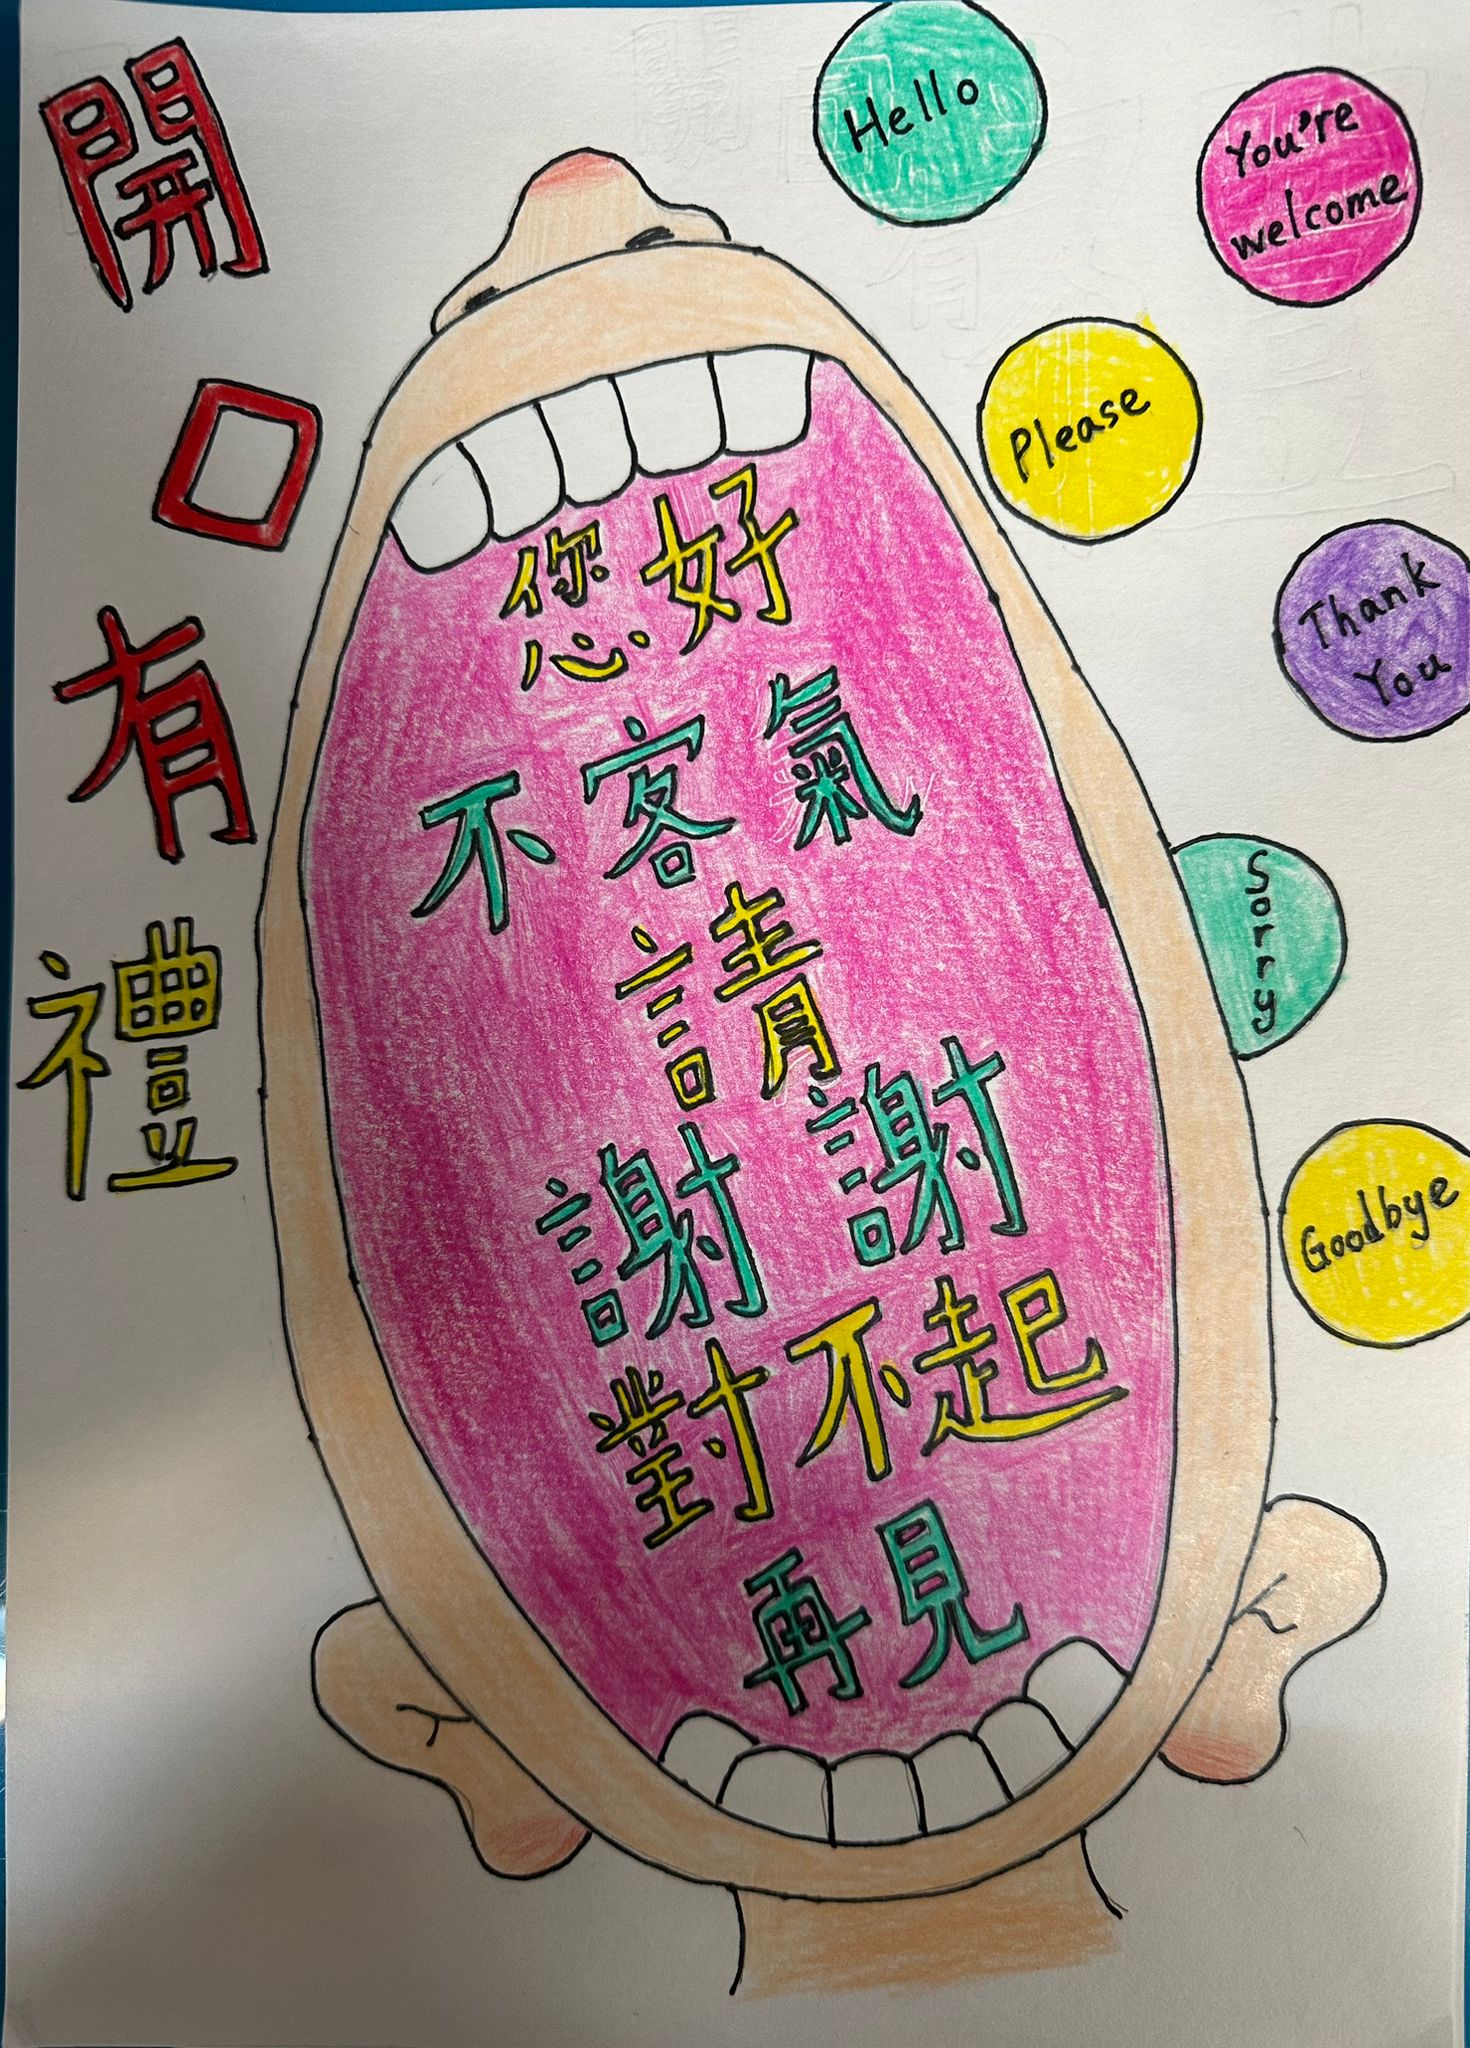 開口有禮
您好
不客氣
請
謝謝
對不起
再見
Hello
You're
welcome
Please
Thank
You
Sorry
Goodbye